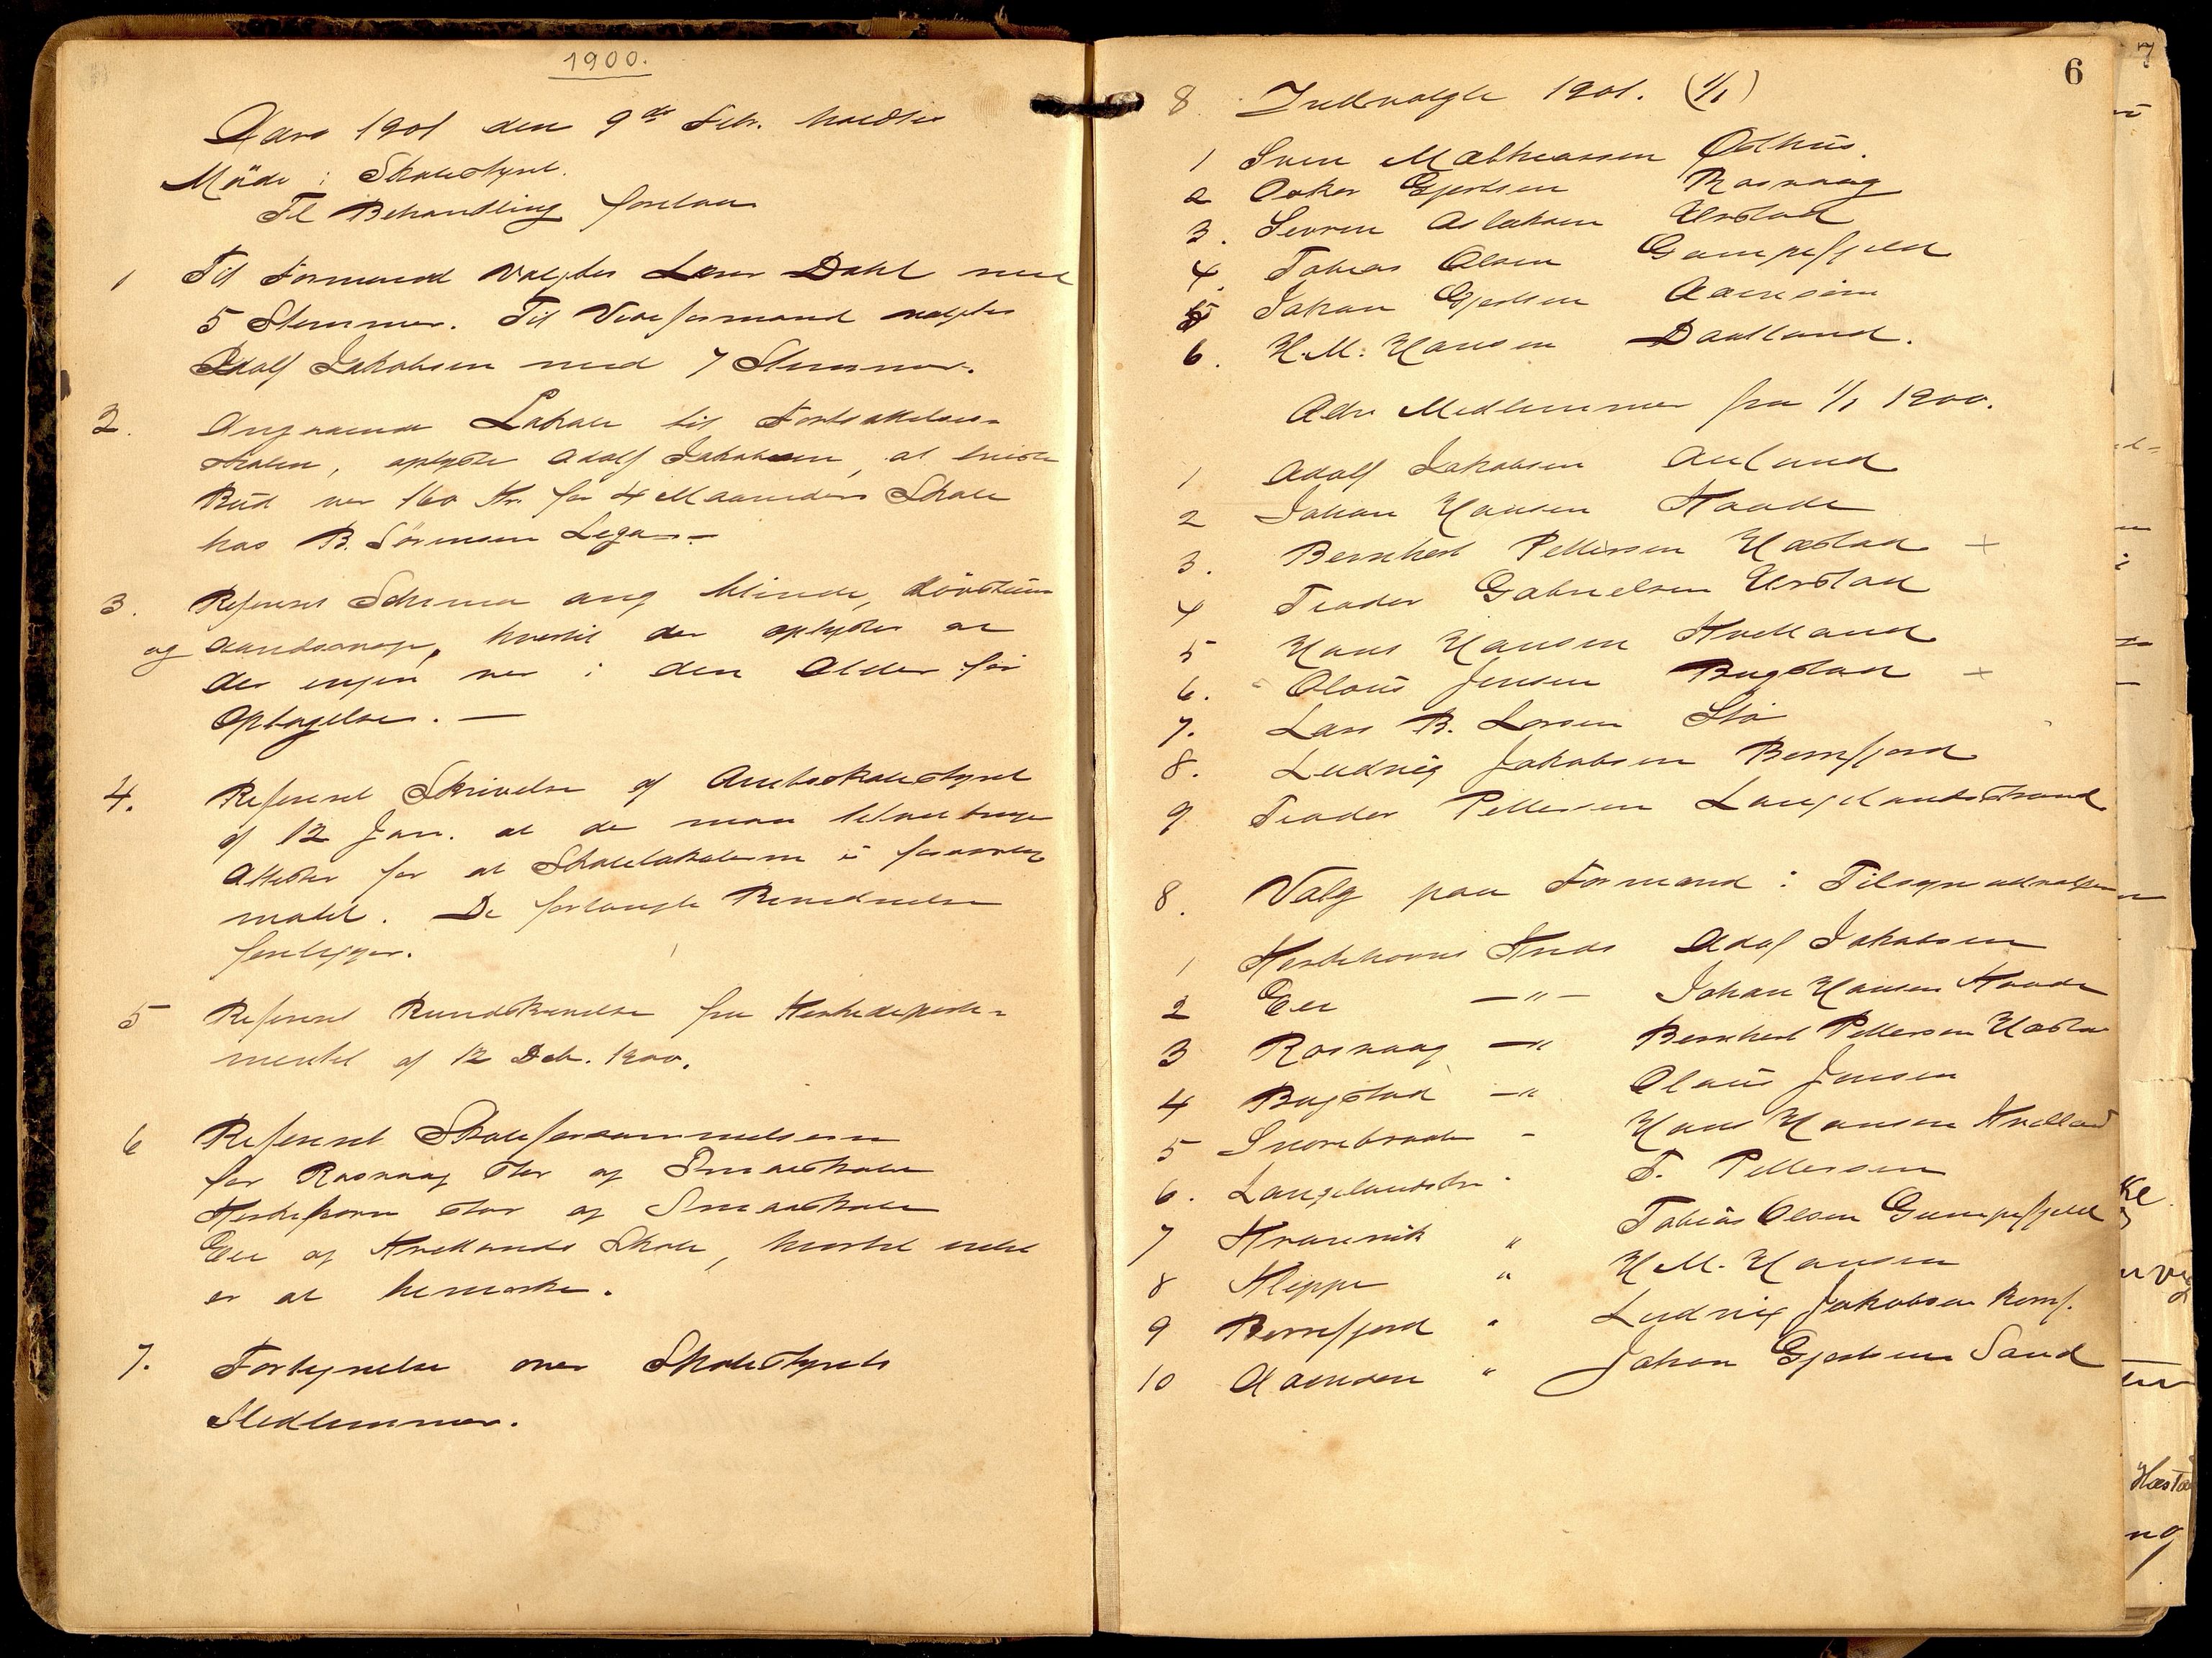 1900.
Aars 1901 den 9de Febr. holdtes
Møde i Skolestyret.
Til Behandling forelaa
1 Til Formand valgtes Lars Dahl med
5 Stemmer. Til Viseformand valgtes
Adolf Jakobsen med 7 Stemmer.
2. Angaaende Lokale til Fortsættelses-
skolen, oplyste Adolf Jakobsen, at
Bud var 160 Kr for 4 Maaneders Skole
hos B. Sörensen Lega
3. Referert Schema ang blinde, døvstum
og Aandssvage, hvortil der oplystes at
der ingen var i den Alder for
Optagelse. —
4. Referert Skrivelse af Amtsskolestyret
af 12 Jan. at de maa
Attester for at Skolelokalerne er
De forlangte
foreligger.
5 Referert Rundskrivelse fra Kirkedeparte-
mentet af 12 Deb. 1900.
6 Referert Skoleforsammelserne
for Rasvaag Stor og Smaaskole
Stor og Smaaskole
Eie og Kvellands Skole, hvortil intet
er at bemærke.
7. Fortegnelse over Skolestyrets
Medlemmer.
6
8 Indvalgte 1901. (1/1)
1 Sven Mathiassen Odhus.
2 Oskar Gjertsen Rasvaag
3. Severin Aslaksen Urstad
4. Tobias Olsen Gumpefjeld
5 Johan Gjertsen
6. H. M. Hansen Daatland.
Ældr Medlemmer fra 1/1 1900.
1 Adolf Jakobsen Auland
2 Johan Hansen Kaade
3. Bernhart Pettersen Hæstad +
4 Teodor Gabrielsen Urstad
5 Hans Hansen Kvelland
6. Olaus Jensen Bugstad +
7. Lars B. Larsen Stö
8. Ludvig Jakobsen Bernfjord
9 Teodor Pettersen Langelandsstrand
8. Valg paa Formand i Tilsynudvalgene
1 Kreds Adolf Jakobsen
2 Eie —"— Johan Hansen Kaade
3 Rasvaag —" Bernhart Pettersen Hæsta
4 Bugstad —" Olaus Jensen
5 Snorebraaten - Hans Hansen Kvelland
6. Langelandsstr. T. Pettersen
7 " Tobias Olsen Gumpefjeld
8 Kleppe " H. M. Hansen
9 Bernfjord " Ludvig Jakobsen Bernf.
10 " Johan Gjertsen Sand
7
Hæsta
ng